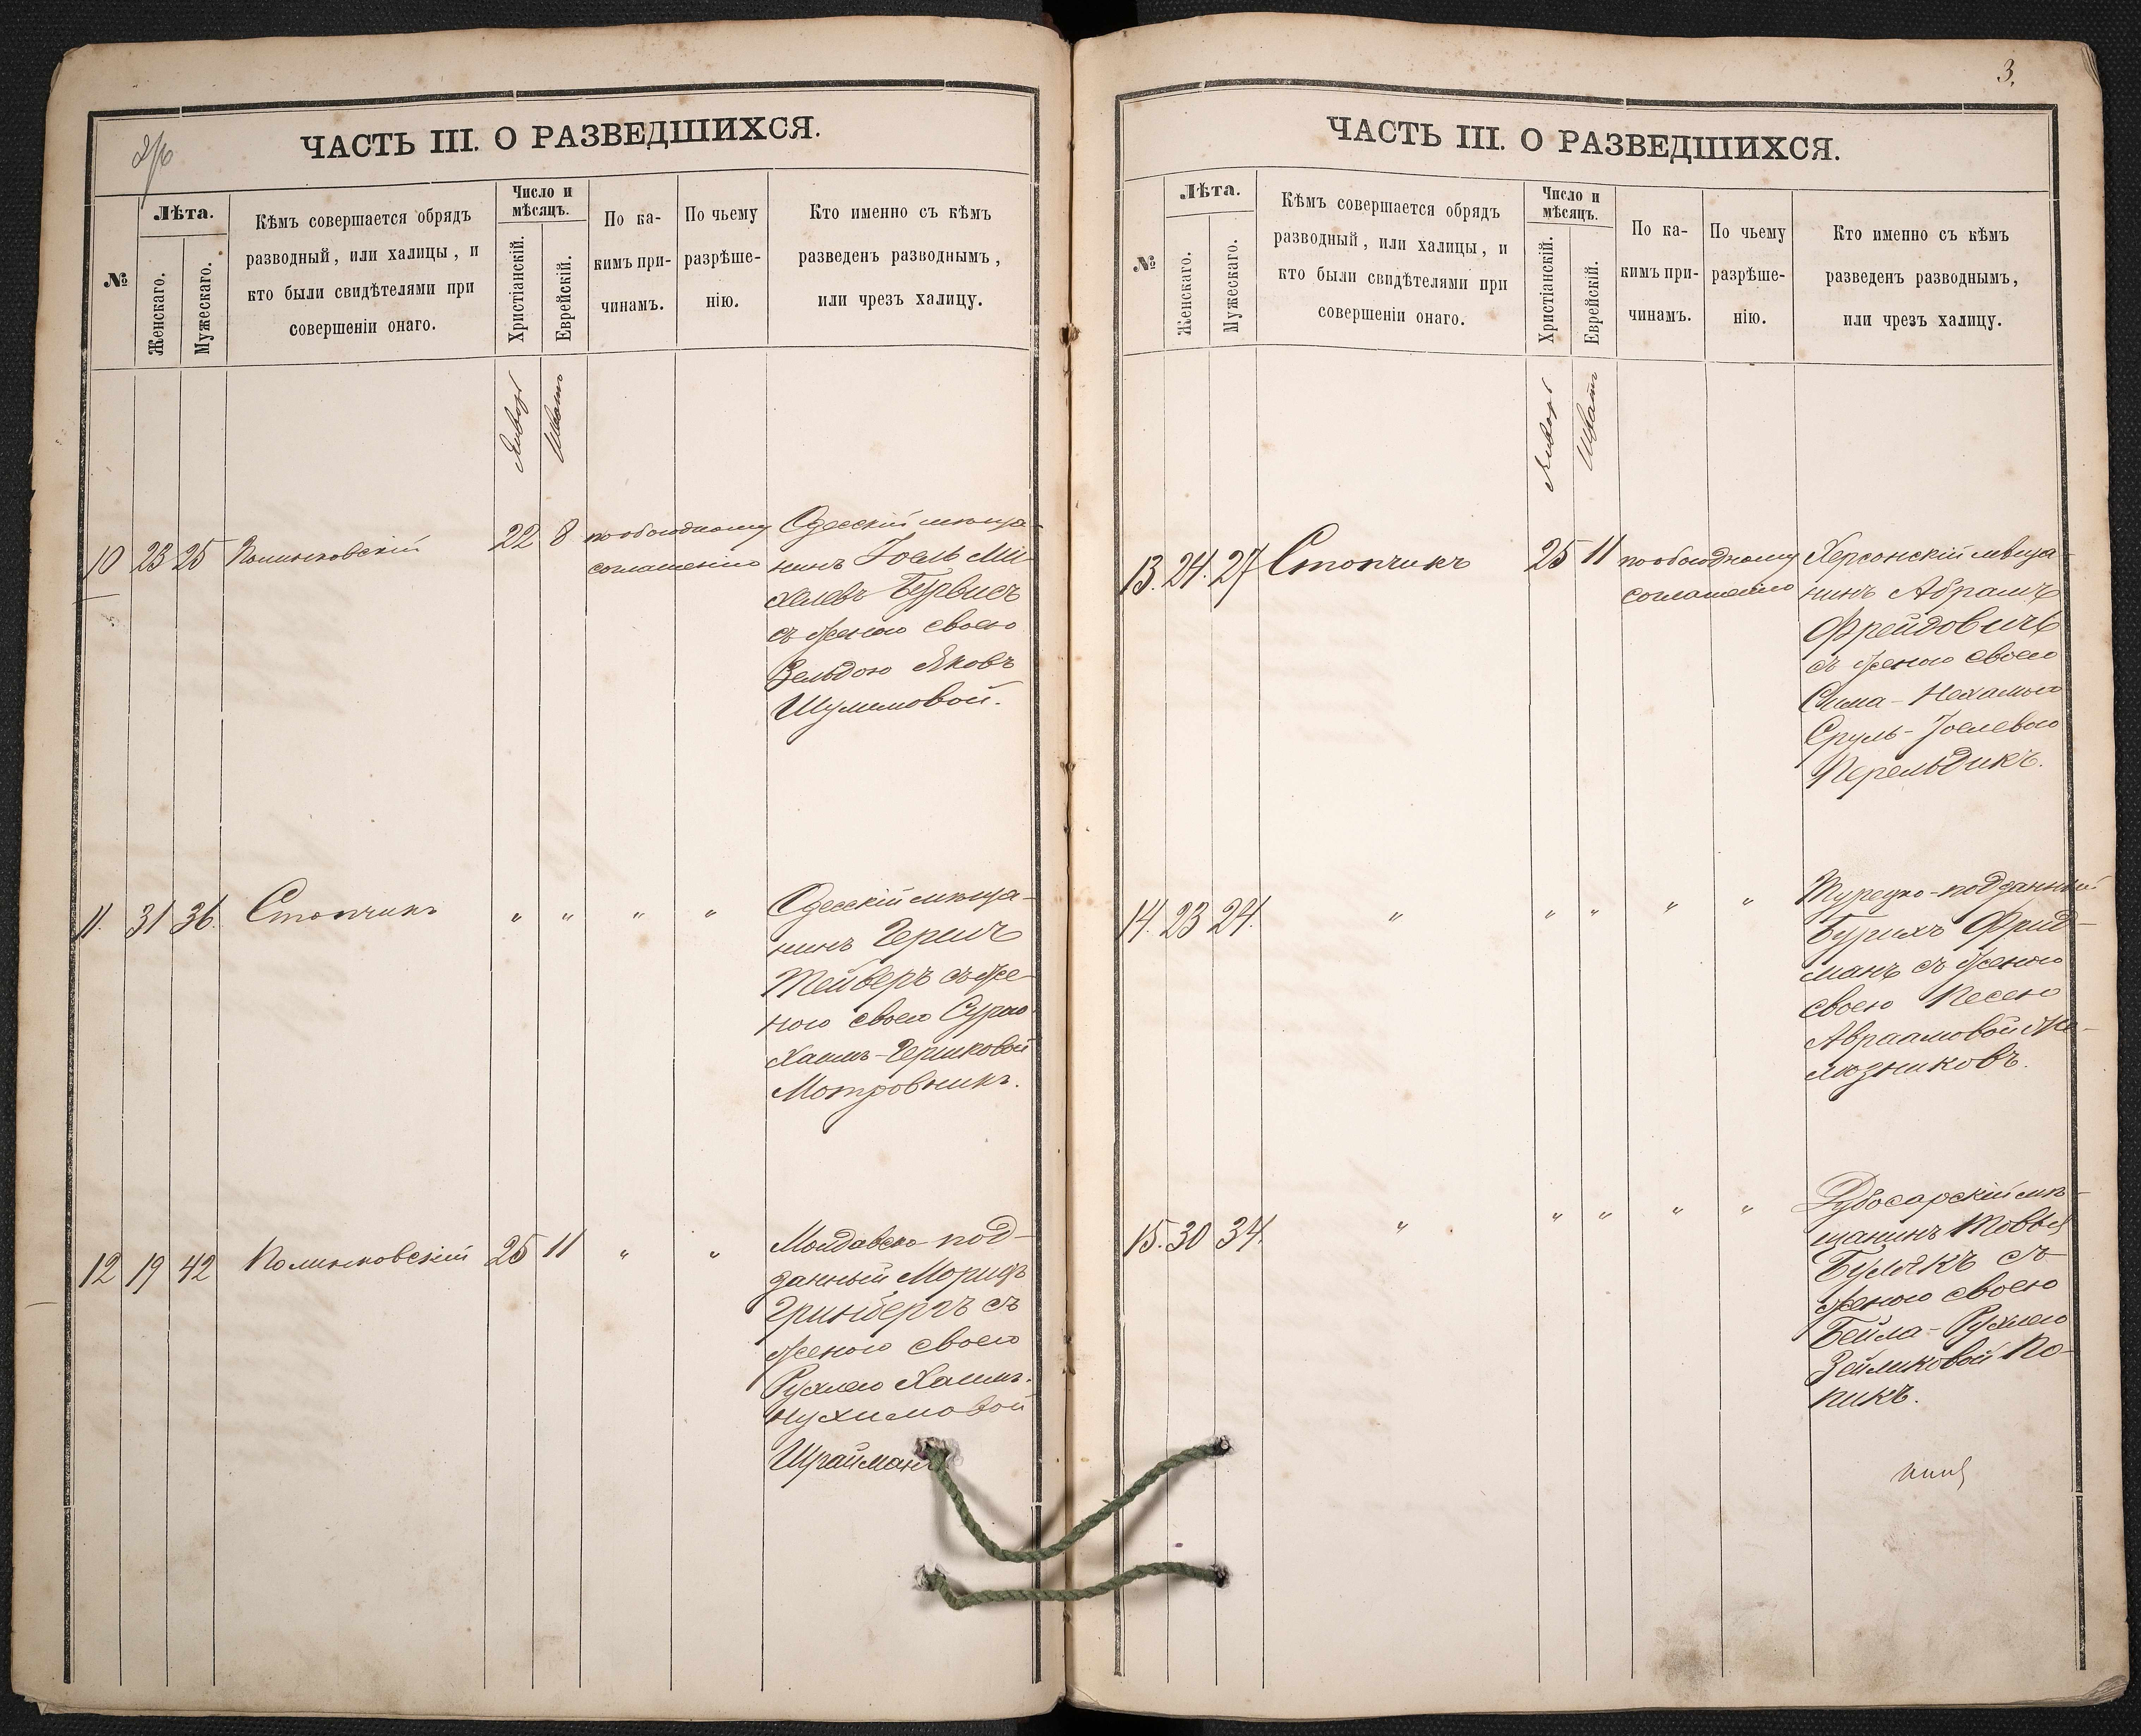 ЧАСТЬ III. О РАЗВЕДШИХСЯ.
№
Лѣта.
Женскаго.
Мужескаго.
Кѣмъ совершается обрядъ
разводный, или халицы, и
кто были свидѣтелями при
совершеніи онаго.
Число и
мѣсяцъ.
Христіанскій.
Еврейскій.
По ка-
кимъ при-
чинамъ.
По чьему
разрѣше-
нію.
Кто именно съ кѣмъ
разведенъ разводнымъ,
или чрезъ халицу.
Январь
Шватъ
10 23 25 Полинковскій 22 8
по обоюдному
соглашенію
Одесскій мѣща-
нинъ Іоель Ми-
хелевъ Бурвисъ
съ женою своею
Зельдою Яковъ
Шулимовой.
11. 31 36. Стопчикъ " " " "
Одесскій мѣща-
нинъ Гершъ
Тейверъ съ же-
ною своею Сурою
Хаимъ-Гершковой
Мотровникъ.
12 19 42 Полинковскій 25 11 " "
Молдавско-под-
данный Морицъ
Гринбергъ съ
женою своею
Рухлею Хаимъ-
Нухимовой
Шрайманъ
3.
ЧАСТЬ III. О РАЗВЕДШИХСЯ.
№
Лѣта.
Женскаго.
Мужескаго.
Кѣмъ совершается обрядъ
разводный, или халицы, и
кто были свидѣтелями при
совершеніи онаго.
Число и
мѣсяцъ.
Христіанскій.
Еврейскій.
По ка-
кимъ при-
чинамъ.
По чьему
разрѣше-
нію.
Кто именно съ кѣмъ
разведенъ разводнымъ,
или чрезъ халицу.
Январь
Шватъ
13. 24. 27 Стопчикъ 25 11
по обоюдному
соглашенію
Херсонскій мѣща-
нинъ Абрамъ
Фрейдовичъ
съ женою своею
Сима-Нехамою
Сруль-Іоелевою
Перельдикъ.
14. 23 24. " " " " "
Турецко-подданный
Бурихъ Фрид-
манъ съ женою
своею Песею
Авраамовой Же-
люзниковъ.
15. 30 34. " " " " "
Дубосарскій мѣ-
щанинъ Товья
Булякъ съ
женою своею
Бейла-Рухлею
Зейликовой По-
пикъ.